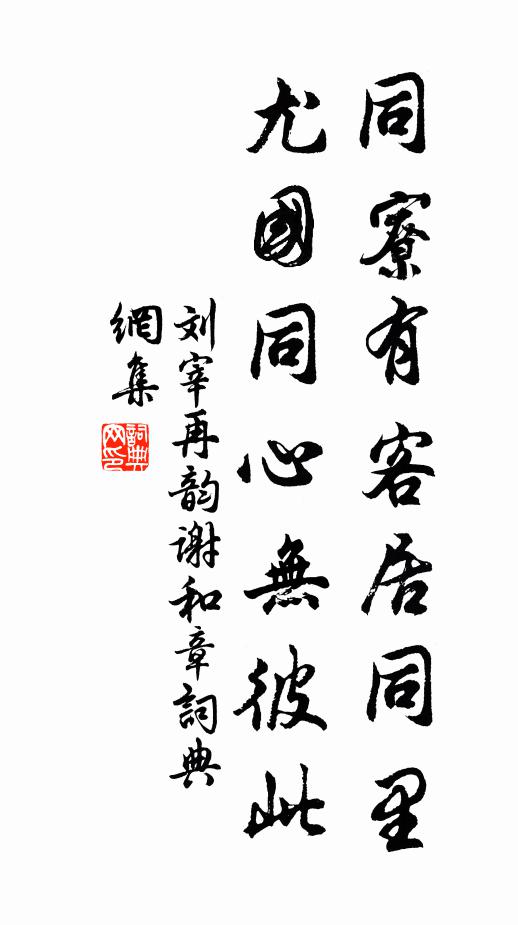 同寮有客居同里
尤國同心無彼此
刘宰再韵谢和章詞典
網集
詞典网印